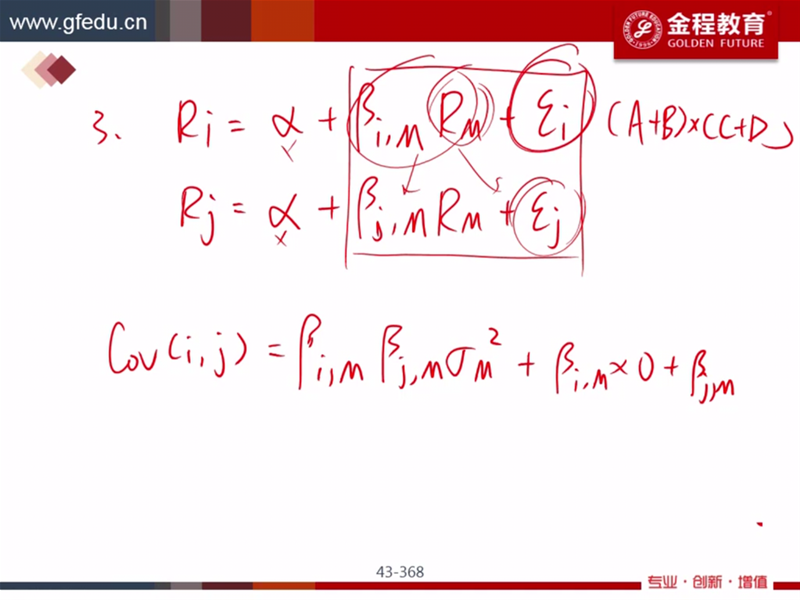 www.gfedu.cn
金程教育®
GOLDEN FUTURE
3. Ri = α + βi,M RM + εi (A+B)×(C+D)
Rj = α + βj,M RM + εj
Cov(i,j) = βi,M βj,M σM² + βi,M × 0 + βj,M
43-368
专业·创新·增值